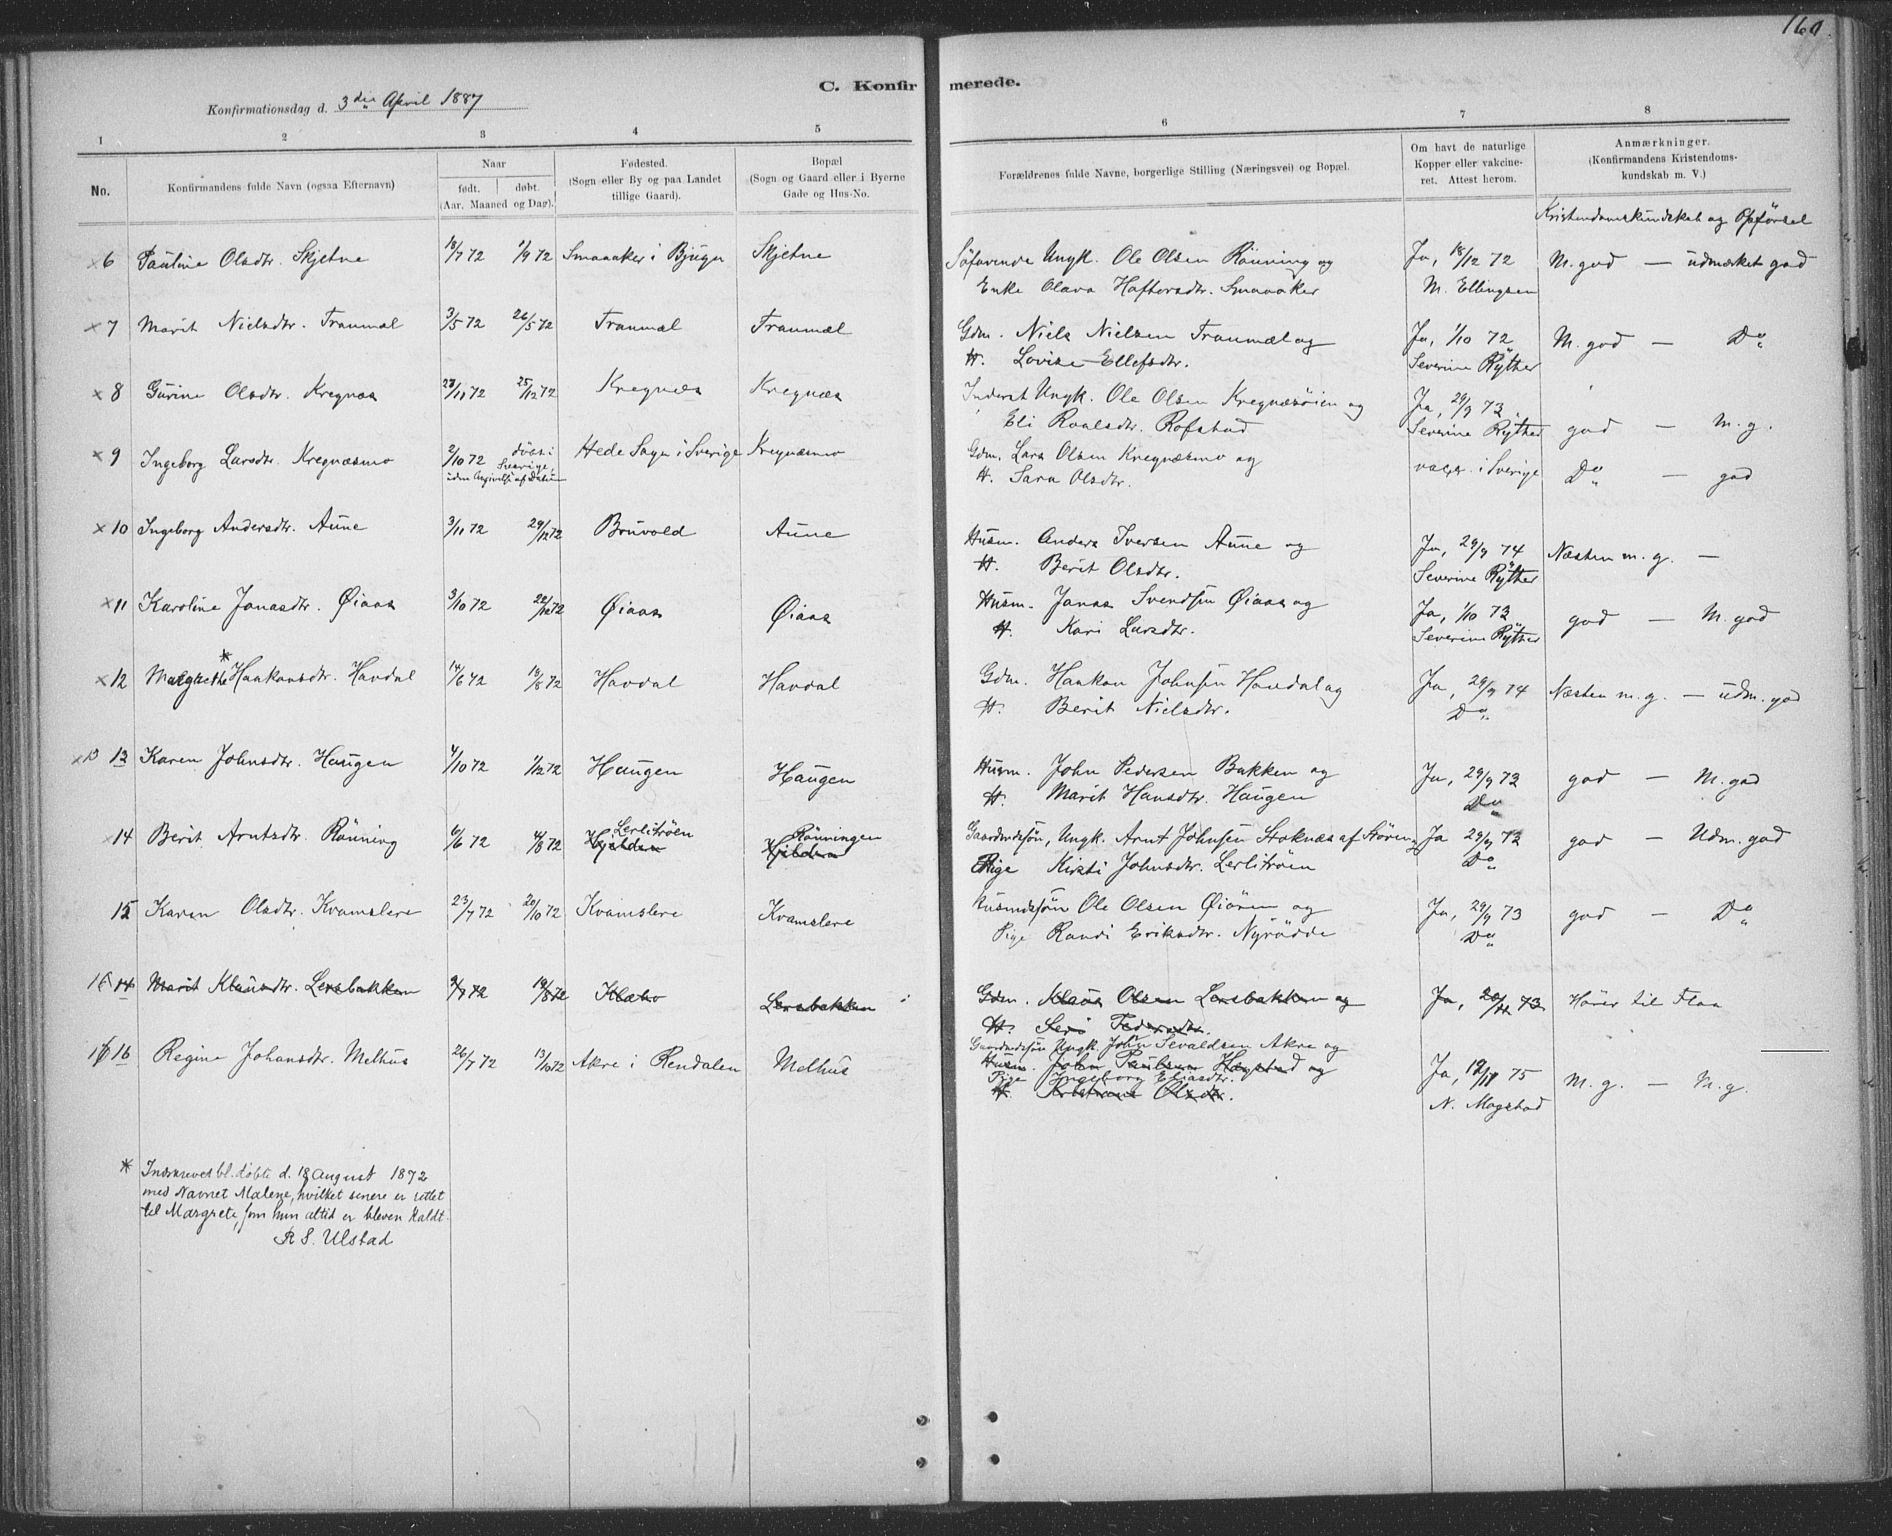 160.
C. Konfirmerede.
Konfirmationsdag d. 3die April 1887
1 2 3 4 5 6 7 8
No. Konfirmandens fulde Navn (ogsaa Efternavn) Naar født. døbt. (Aar, Maaned og Dag). Fødested. (Sogn eller By og paa Landet tillige Gaard). Bopæl (Sogn og Gaard eller i Byerne Gade og Hus-No. Forældrenes fulde Navne, borgerlige Stilling (Næringsvei) og Bopæl. Om havt de naturlige Kopper eller vakcineret. Attest herom. Anmærkninger. (Konfirmandens Kristendomskundskab m. V.)
Kristendomskundskab og Opførsel
× 6 Pauline Olsdtr. Skjetne 18/7 72 1/9 72 Smaaaker i Bjugn Skjetne Søfarende Ungk. Ole Olsen Rönning og Ja, 18/12 72 M. god — udmærket god
Enke Olava Haftorsdtr. Smaaaker M. Ellingsen
× 7 Marit Nielsdtr. Tranmæl 3/5 72 26/5 72 Tranmæl Tranmæl Gdm. Niels Nielsen Tranmæl og Ja, 1/10 72 M. god — Do
H. Lovise Ellefsdtr. Severine Rÿther
× 8 Gurine Olsdtr. Kregnæs 23/11 72 25/12 72 Kregnæs Kregnæs Inderst Ungk. Ole Olsen Kregnæsöien og Ja, 29/9 73 god — M. g.
Eli Roalsdtr. Rofstad Severine Rÿther
× 9 Ingeborg Larsdtr. Kregnæsmo 2/10 72 døbt i Sverige, uden Angivelse af Datum Hede Sogn i Sverige Kregnæsmo Gdm. Lars Olsen Kregnæsmo og vacc. i Sverige Do — god
H. Sara Olsdtr.
× 10 Ingeborg Andersdtr. Aune 3/11 72 29/12 72 Bruvold Aune Husm. Anders Iversen Aune og Ja, 29/9 74 Næsten m. g. —
H. Berit Olsdtr. Severine Rÿther
× 11 Karoline Jonasdtr. Øiaas 3/10 72 22/12 72 Øiaas Øiaas Husm. Jonas Svendsen Øiaas og Ja, 1/10 73 god — M. god
H. Kari Larsdtr. Severine Rÿther
× 12 Margrethe * Haakonsdtr. Havdal 14/6 72 18/8 72 Havdal Havdal Gdm. Haakon Johnsen Havdal og Ja, 29/9 74 Næsten m. g. — udm. god
H. Berit Nielsdtr. Do
× 13 13 Karen Johnsdtr. Haugen 4/10 72 1/12 72 Haugen Haugen Husm. John Pedersen Bakken og Ja, 29/9 73 god — M. god
H. Marit Hansdtr. Haugen Do
× 14 Berit Arntsdtr. Rönning 6/6 72 4/8 72 Lerlitröen Rönningen Gaardmdssøn, Ungk. Arnt Johnsen Stoknæs af Støren Ja 29/9 73 god — Udm. god
Pige Kirsti Johnsdtr. Lerlitröen Do
15 Karen Olsdtr. Kvamslere 23/7 72 20/10 72 Kvamslere Kvamslere Husmdssøn Ole Olsen Øiören og Ja, 29/9 73 god — Do
Pige Randi Eriksdtr. Nyrödde Do
Marit Klausdtr. Lersbakken 9/7 72 18/8 72 Klæbo Lersbakken Gdm. Klaus Olsen Lersbakken og Ja, 73 Hører til Flaa
H. Seri Pedersdtr.
16 Regine Johansdtr. Melhus 26/7 72 13/10 72 Akre i Rendalen Melhus Gaardmdssøn Ungk. John Sevaldsen Akre og
Husm. John Paulsen Hagstad og Ja, 12/11 75 M. g. — M. g.
Pige Ingeborg Eliasdtr.
H. Olsdtr. N. Mogstad
* Indskrevet bl. døbte d. 18 August 1872
med Navnet Malene, hvilket senere er rettet
til Margrete, som hun altid er bleven kaldt.
R S. Ulstad